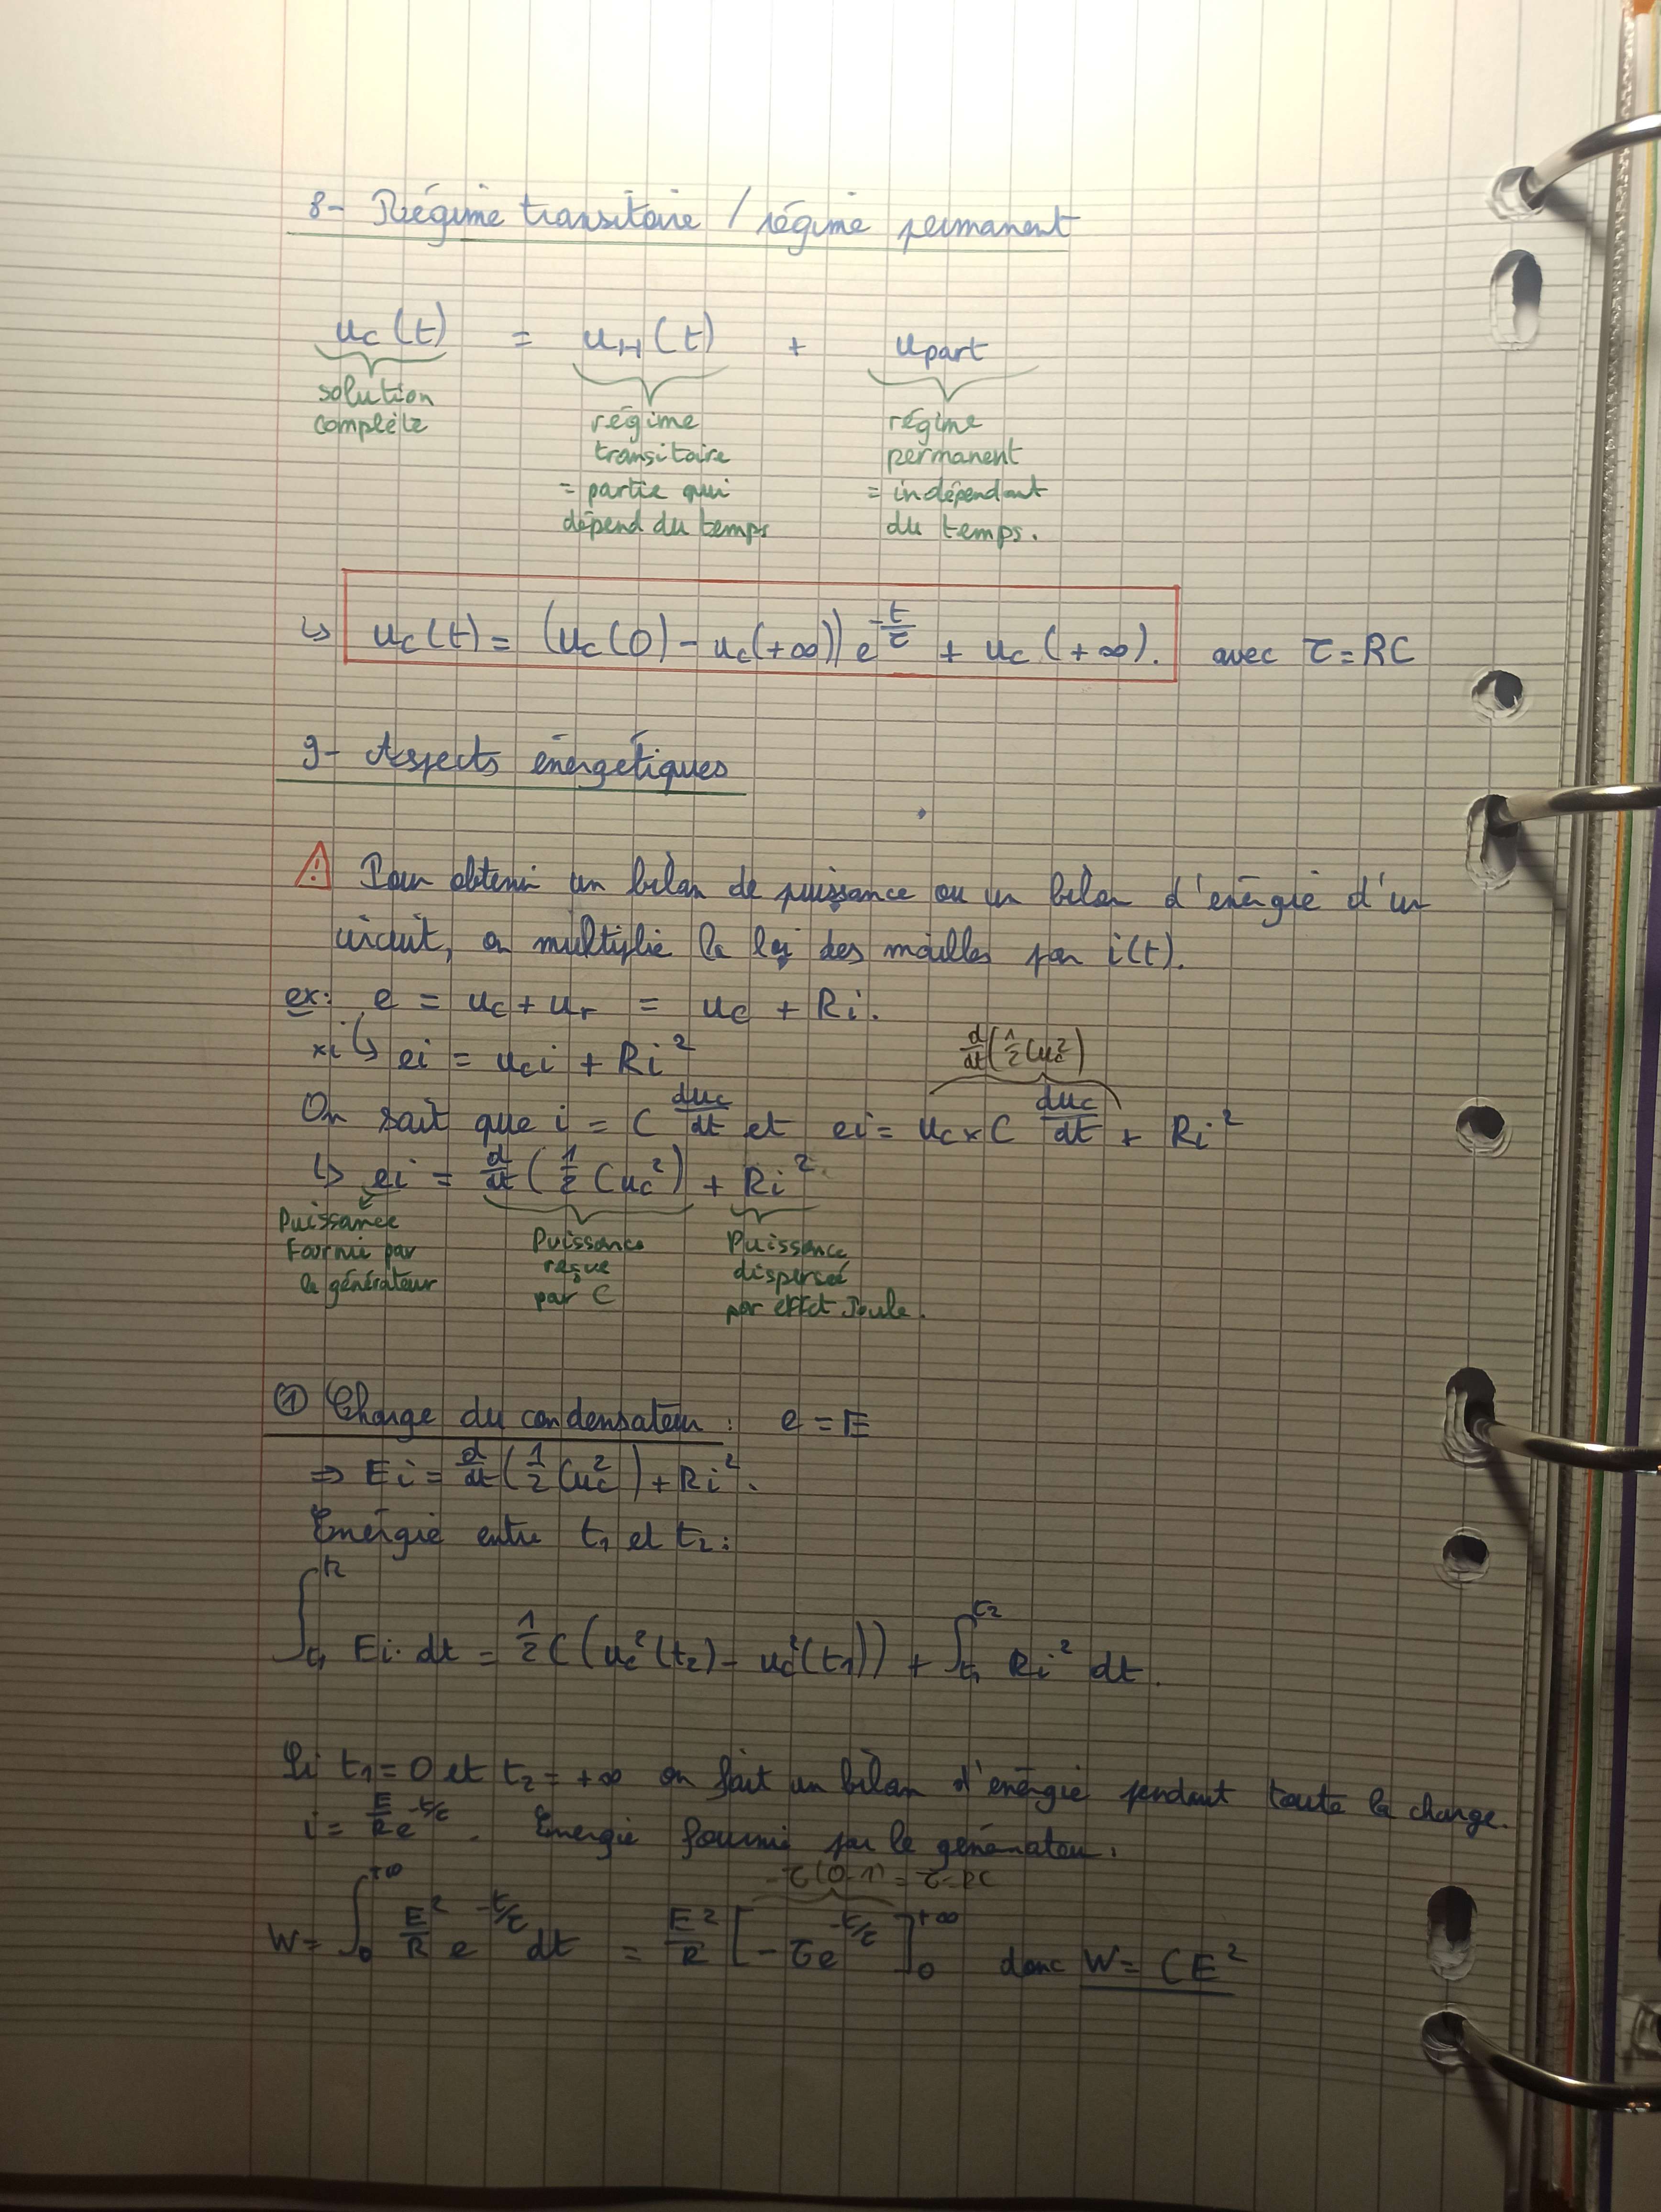 8- Régime transitoire / régime permanent
uc(t) = uH(t) + upart
solution complète
régime transitaire = partie qui dépend du temps
régime permanent = indépendant du temps.
↳ uc(t) = (uc(0) - uc(+∞)) e^(-t/τ) + uc(+∞). avec τ = RC
9- Aspects énergétiques
⚠ Pour obtenir un bilan de puissance ou un bilan d'énergie d'un
circuit, on multiplie la loi des mailles par i(t).
ex: e = uc + ur = uc + Ri.
×i ↳ ei = uci + Ri²
d/dt(1/2 Cuc²)
On sait que i = C duc/dt et ei = uc × C duc/dt + Ri²
↳ ei = d/dt (1/2 Cuc²) + Ri².
Puissance fournie par le générateur
Puissance reçue par C
Puissance dispersée par effet Joule.
① Charge du condensateur : e = E
⇒ Ei = d/dt (1/2 Cuc²) + Ri².
Énergie entre t1 et t2 :
∫t1^t2 Ei·dt = 1/2 C (uc²(t2) - uc²(t1)) + ∫t1^t2 Ri² dt.
Si t1 = 0 et t2 = +∞ on fait un bilan d'énergie pendant toute la charge.
i = E/R e^(-t/τ). Énergie fournie par le générateur :
-τ(0-1) = τ = RC
W = ∫0^+∞ E²/R e^(-t/τ) dt = E²/R [-τe^(-t/τ)]0^+∞ donc W = CE²